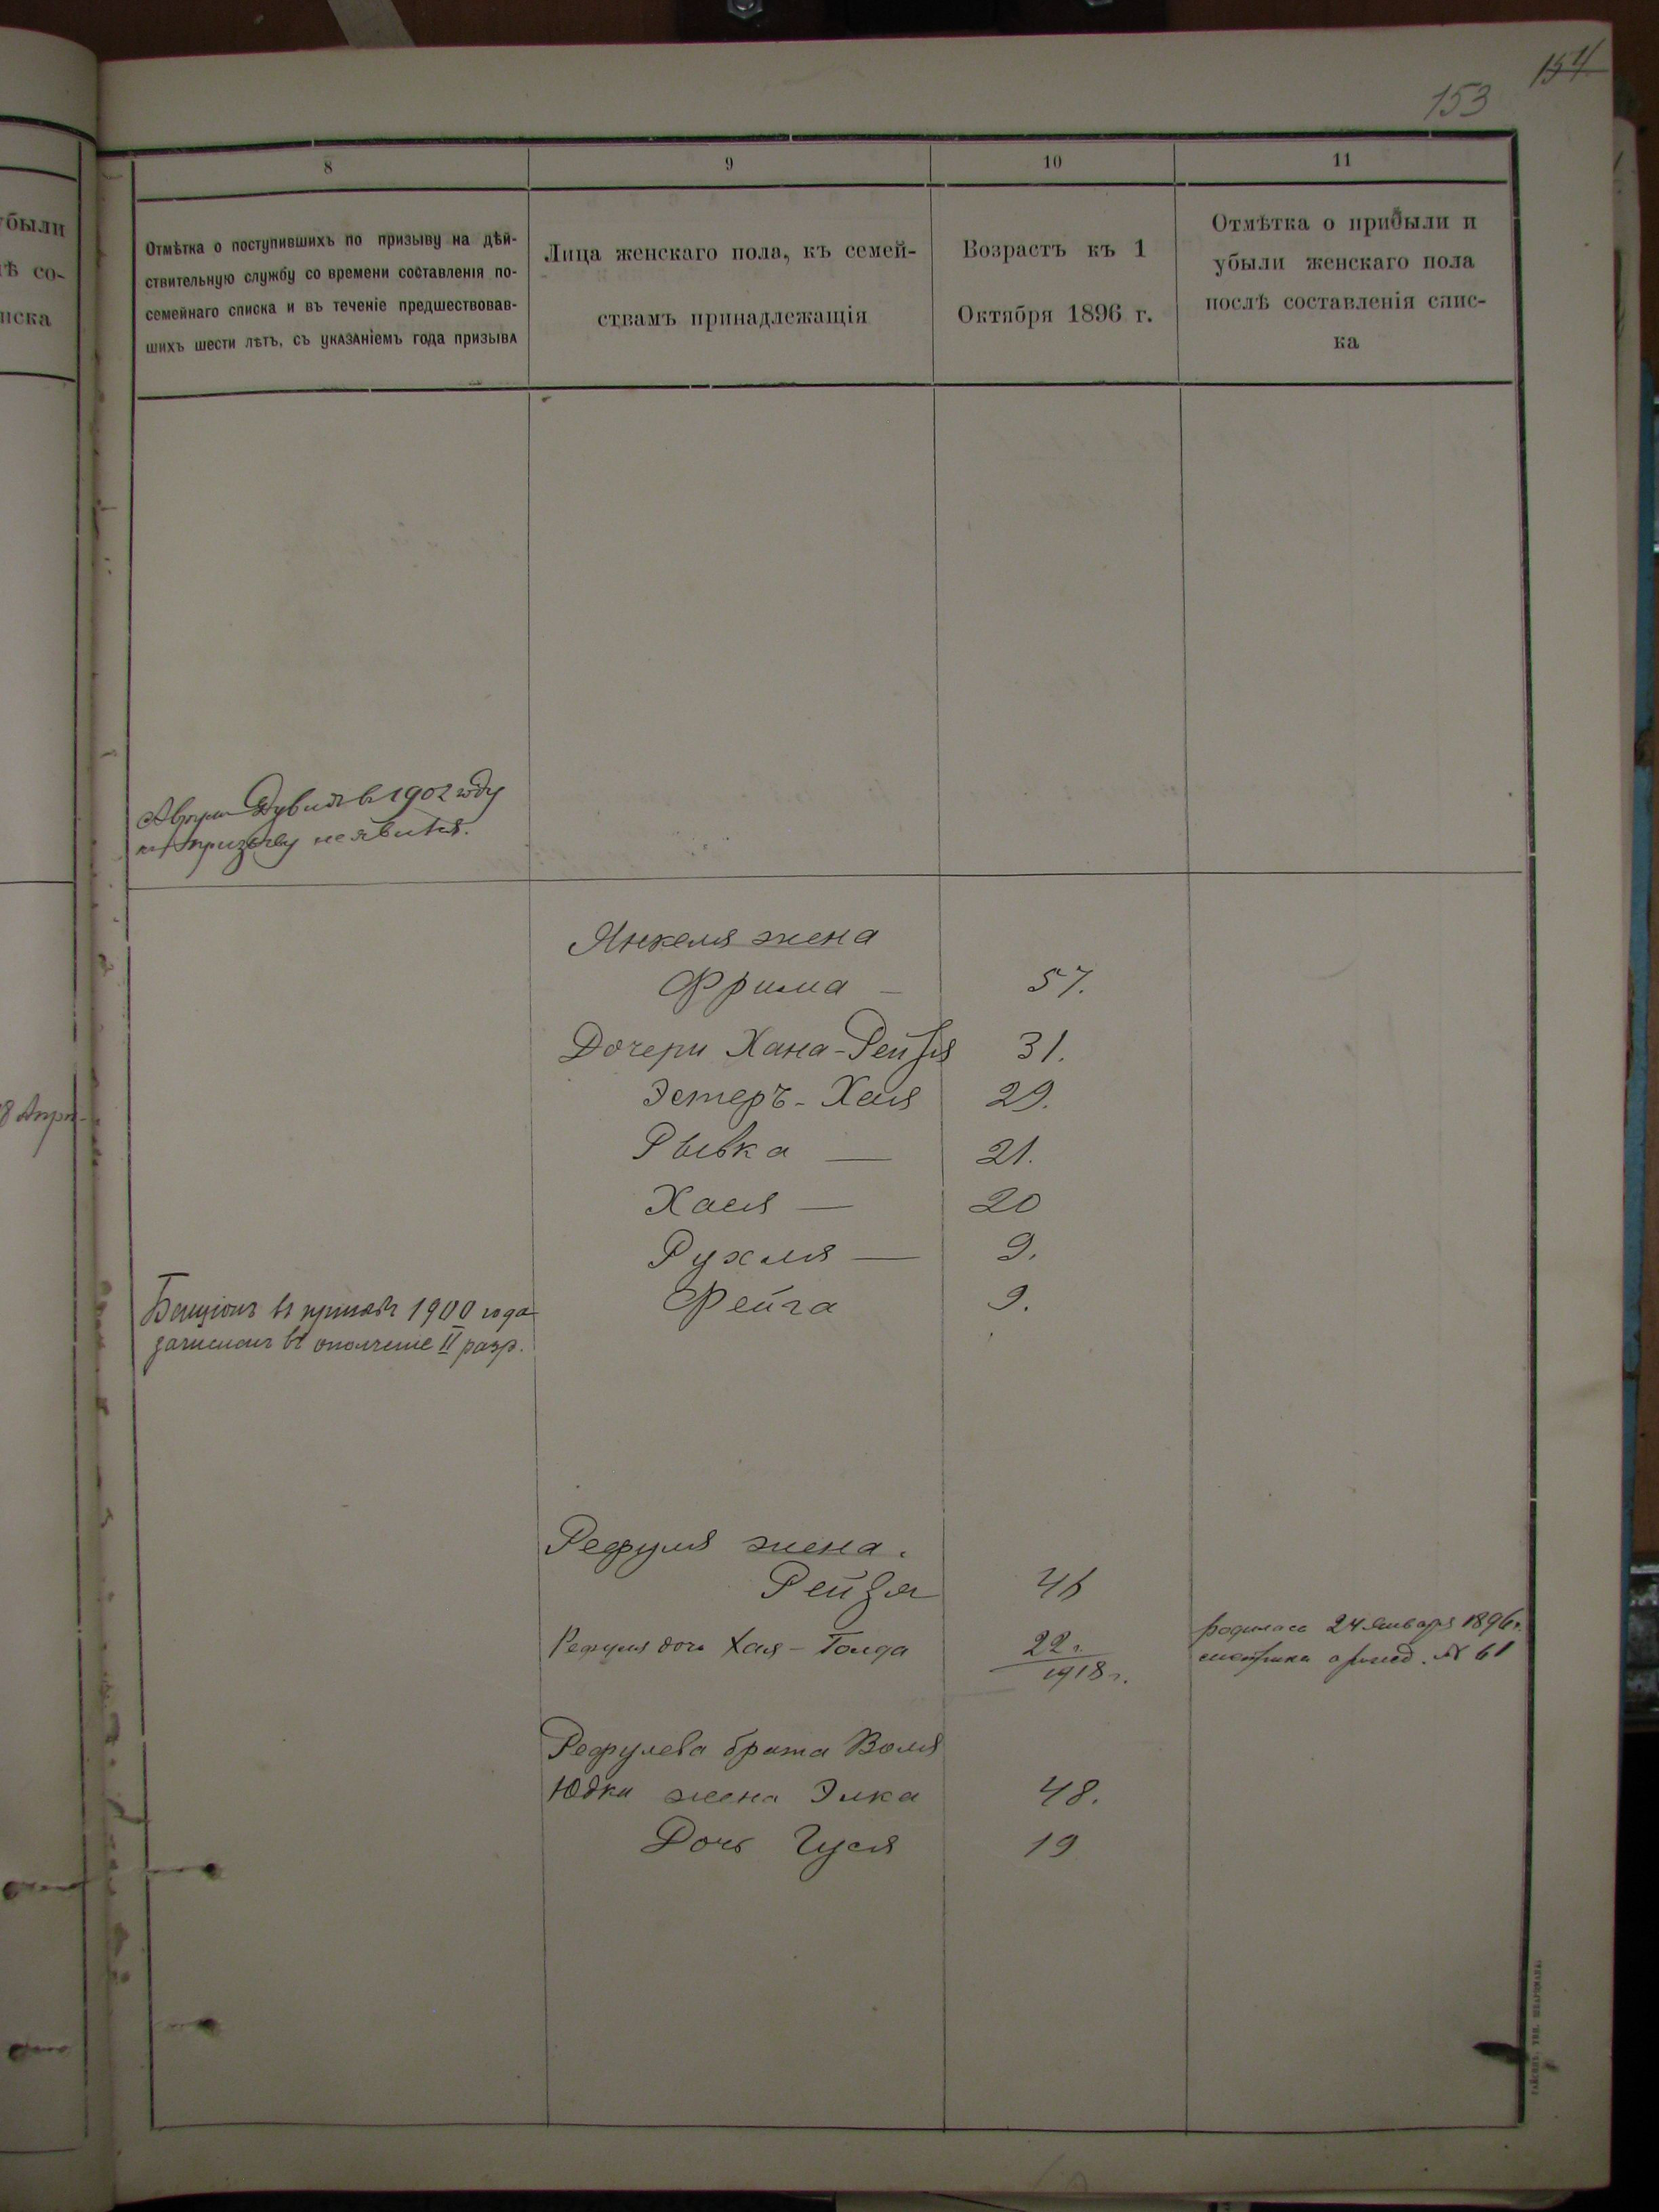 154
153
8
9
10
11
Отмѣтка о поступившихъ по призыву на дѣй-
ствительную службу со времени составленія по-
семейнаго списка и въ теченіе предшествовав-
шихъ шести лѣтъ, съ указаніемъ года призыва
Лица женскаго пола, къ семей-
ствамъ принадлежащія
Возрастъ къ 1
Октября 1896 г.
Отмѣтка о прибыли и
убыли женскаго пола
послѣ составленія спис-
ка
убыли
лѣ со-
писка
Дувидъ въ 1902 году
къ призыву не явился.
Янкеля жена
Фрима — 57.
Дочери Хана-Рейзя 31.
Эстеръ-Хая 29.
Рывка — 21.
Хася — 20
Рухля — 9.
Фейга 9.
Бенціонъ въ призывъ 1900 года
зачисленъ въ ополченіе II разр.
Рефуля жена.
Рейзя 46
Рефуля дочь Хая-Голда 22 г.
1918 г.
родилась 24 Января 1896 г.
метрика о рожд. № 61
Рефулева брата Воля
Юдки жена Элка 48.
Дочь Гуся 19
ГАЙСИНЪ, ТИП. ШВАРЦМАНА.